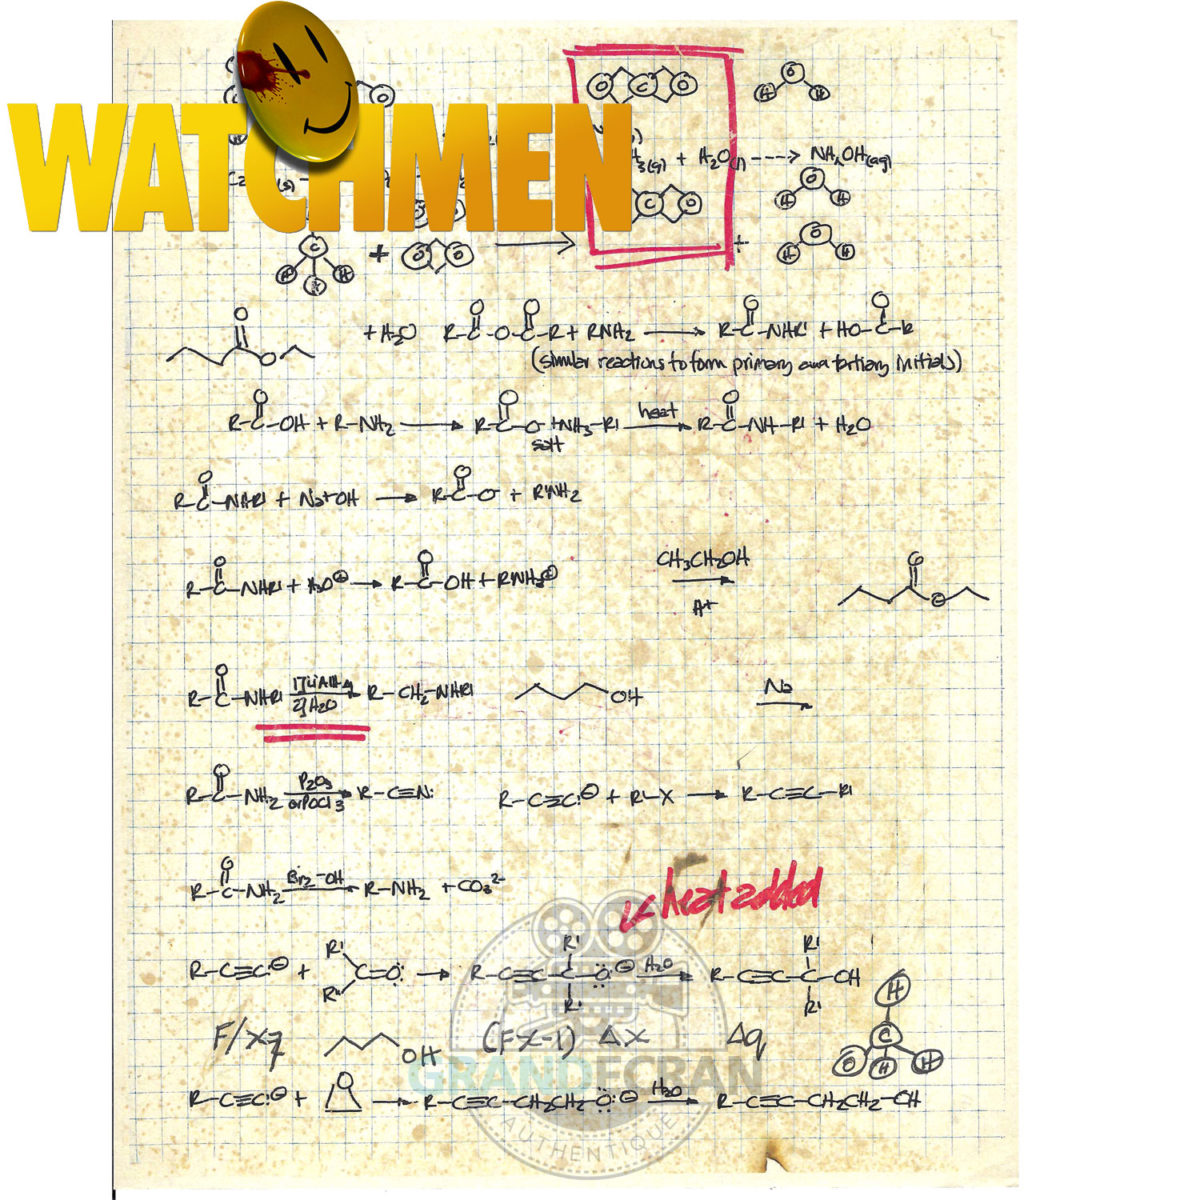 WATCHMEN
3(g) + H₂O(l) ---> NH₄OH(aq)
+ →
+
+ H₂O R-C-O-C-R + RNH₂ → R-C-NHR' + HO-C-R
(similar reactions to form primary and tertiary
R-C-OH + R-NH₂ → R-C-O⁻ +NH₃-R' heat → R-C-NH-R' + H₂O
salt
R-C-NHR' + Na+OH → R-C-O⁻ + R'NH₂
R-C-NHR' + H₃O⊕ → R-C-OH + R'NH₃⊕ CH₃CH₂OH
H+
R-C-NHR' 1) LiAlH₄ 2) H₂O → R-CH₂-NHR' OH Na
R-C-NH₂ P₂O₅ or POCl₃ → R-C≡N:
R-C≡C:⊖ + R'-X → R-C≡C-R'
R-C-NH₂ Br₂ -OH → R-NH₂ + CO₃²⁻
heat added
R-C≡C:⊖ + R' R'' C=O: → R-C≡C-C-O:⊖ R' R' H₂O → R-C≡C-C-OH R' R'
F/xq OH (Fx-1) Δx Δq
GRANDECRAN
R-C≡C:⊖ + O → R-C≡C-CH₂CH₂-O:⊖ H₂O → R-C≡C-CH₂CH₂-OH
AUTHENTIQUE